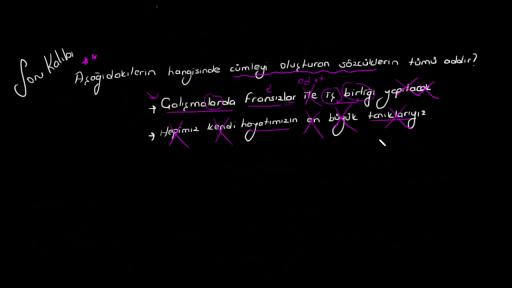 Soru Kalıbı
Aşağıdakilerin hangisinde cümleyi oluşturan sözcüklerin tümü addır?
→ Çalışmalarda Fransızlar ile iş birliği yapılacak
→ Hepimiz kendi hayatımızın en büyük tanıklarıyız